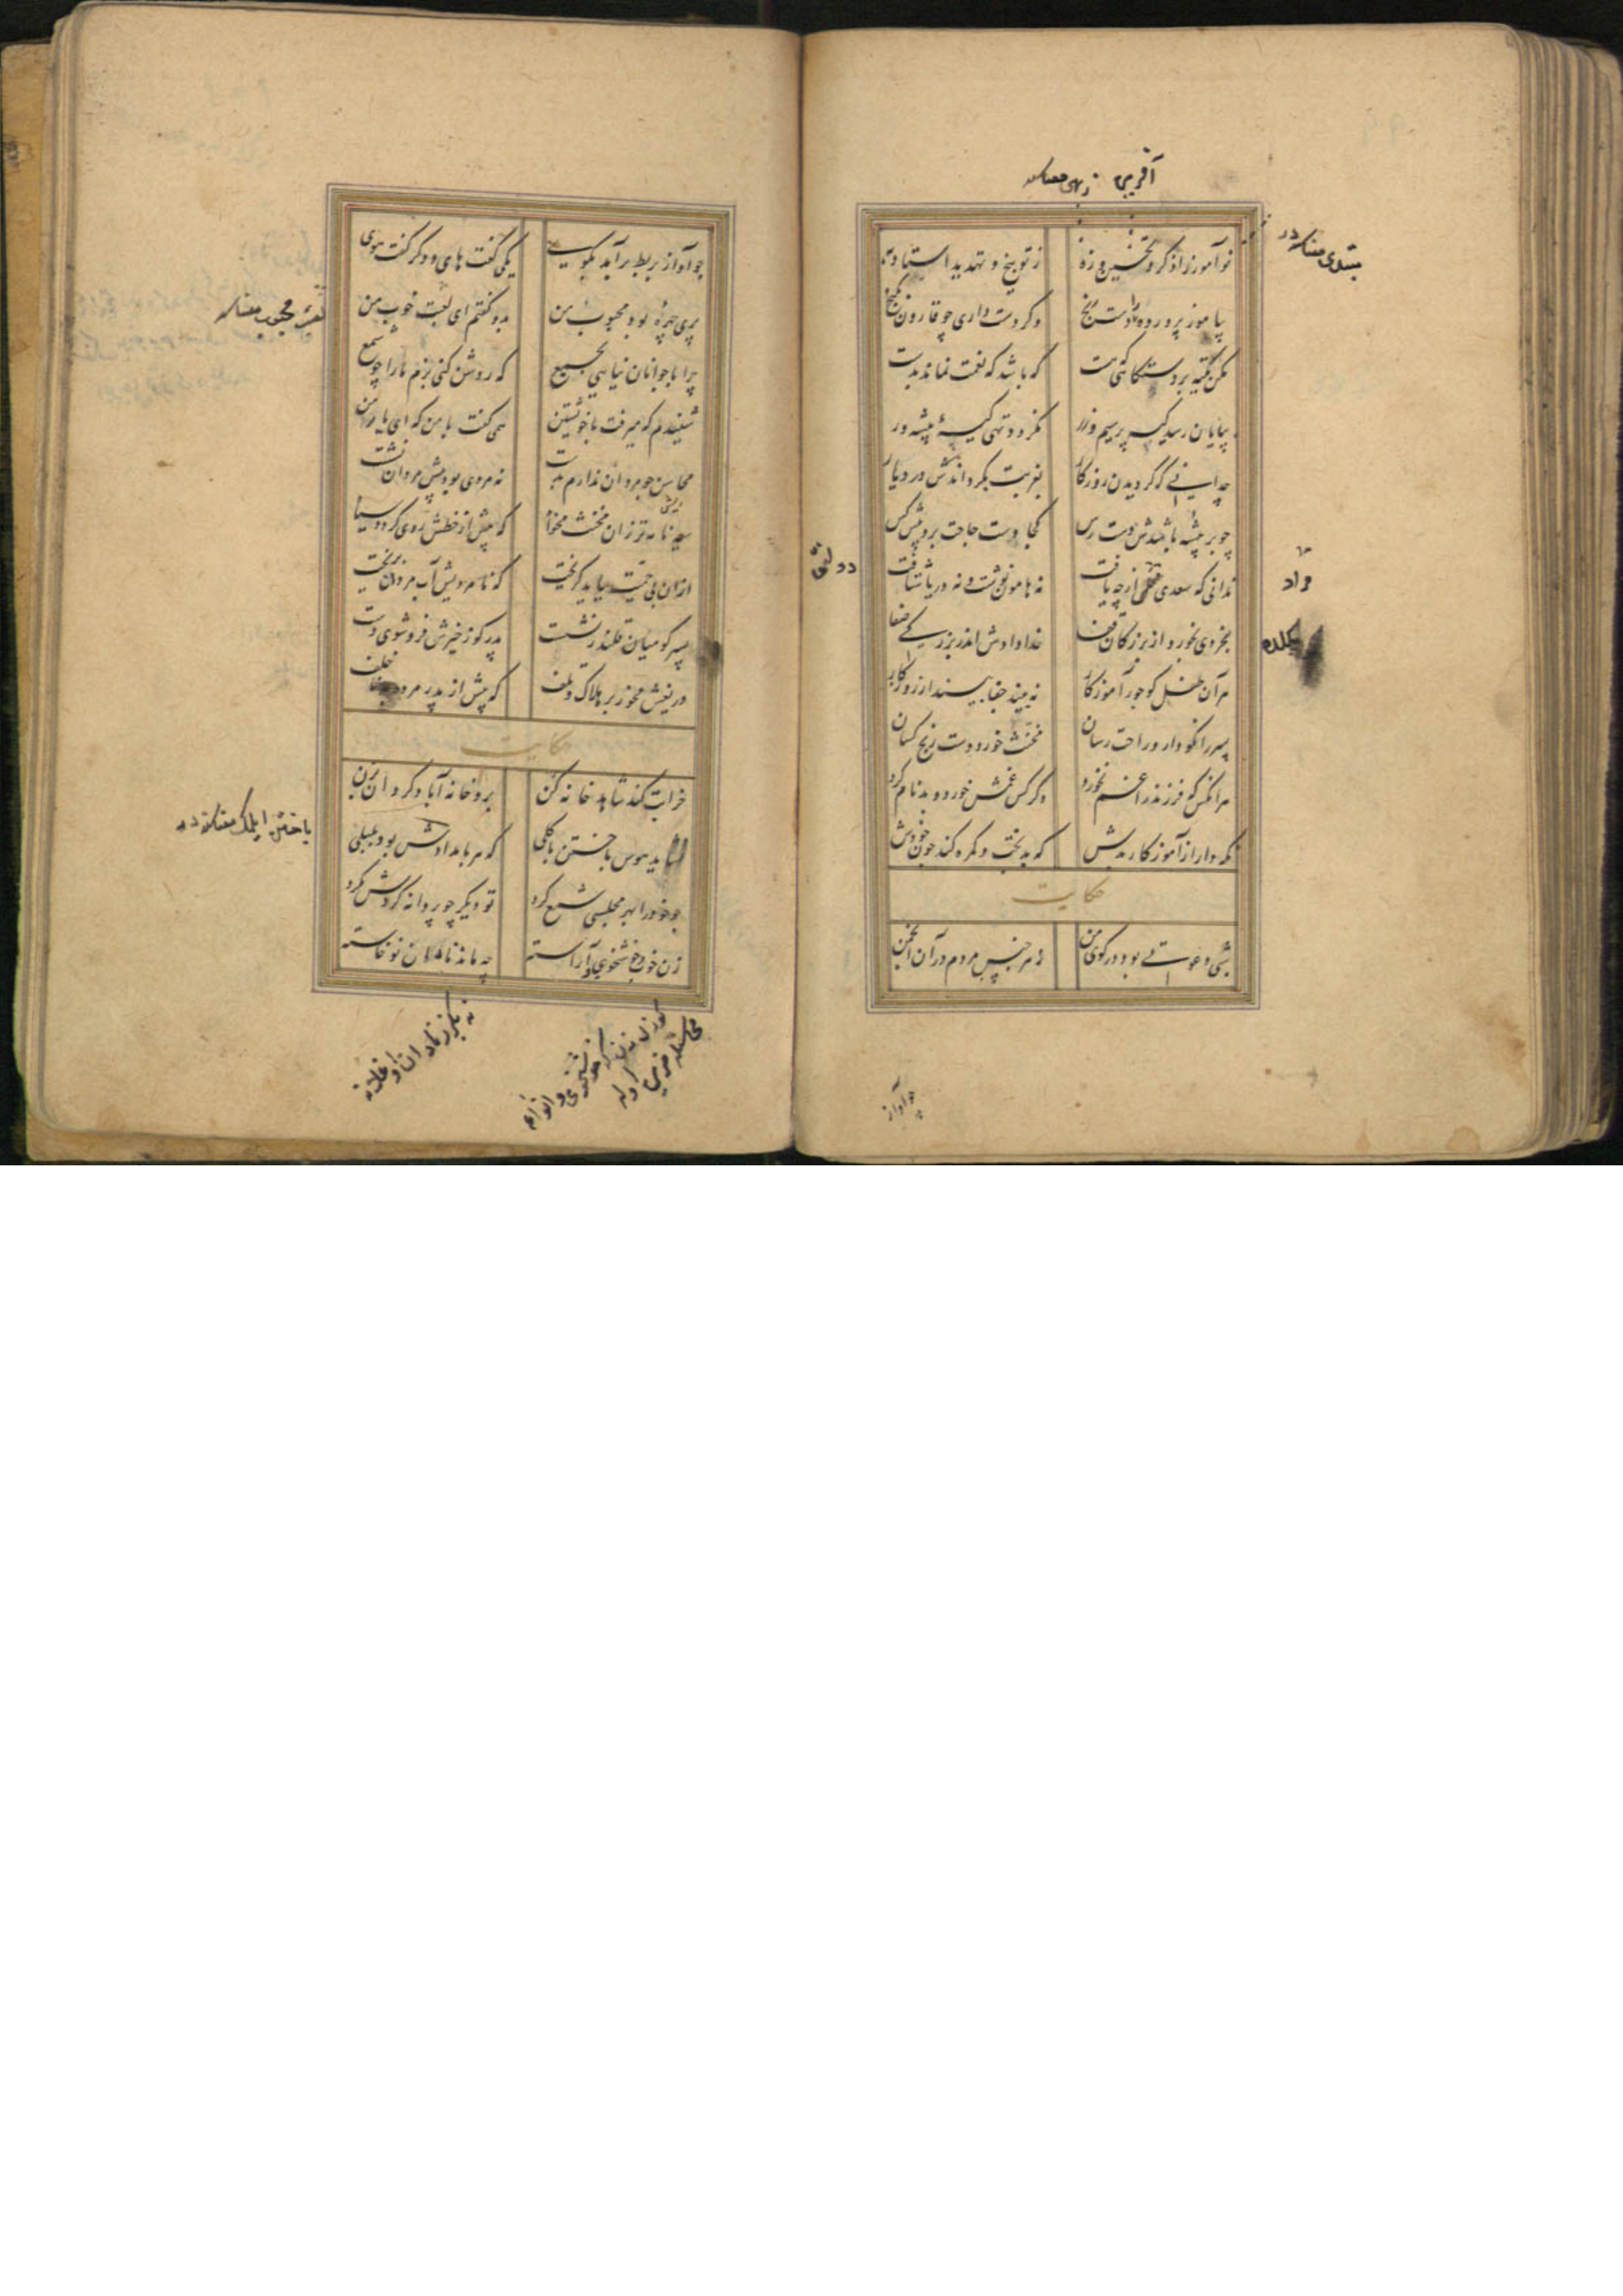 آفرین زهی معناسنه
نوآموز را ذکر و تحسین و زه
ز توبیخ و تهدید استاد به
مبتدی معناسنه در
بیاموز پرورده را دست رنج
وگر دست داری چو قارون گنج
مکن تکیه بر دستگاهی که هست
که باشد که نعمت نماند بدست
بپایان رسد کیسه پر سیم و زر
نگردد تهی کیسه پیشه ور
چه دانی که گردیدن روزگار
بغربت بگرداندش در دیار
چو بر پیشه باشدش دست رس
کجا دست حاجت برد پیش کس
ندانی که سعدی از چه یافت
نه هامون نوشت و نه دریا شتافت
مراد
بخردی بخورد از بزرگان قفا
خدا دادش اندر بزرگی صفا
هر آن طفل کو جور آموزگار
نبیند جفا بیند از روزگار
پسر را نکو دار و راحت رسان
مخنث خورد دست رنج کسان
هر آنکس که فرزند را غم نخورد
دگر کس غمش خورد و بدنام کرد
نگه دار از آموزگار بدش
که بدبخت و گمره کند چون خودش
حکایت
شبی دعوتی بود در کوی من
ز هر جنس مردم در آن انجمن
چو آواز
چو آواز بربط برآمد بکوی
یکی گفت های و دگر گفت هوی
پری چهره بود محبوب من
بدو گفتم ای لعبت خوب من
محبوب معناسنه
چرا با جوانان نیایی بجمع
که روشن کنی بزم ما را چو شمع
شنیدم که میرفت با خویشتن
همی گفت با من که ای یار من
محاسن چو مردان ندارم بدست
نه مردی بود پیش مردان نشست
سیه نامه تر زان مخنث مخواه
که پیش از خطش روی گردد سیاه
از آن بی حمیت بباید گریخت
که نامردیش آب مردان بریخت
پسر کو میان قلندر نشست
پدر گو ز خیرش فرو شوی دست
دریغش مخور بر هلاک و تلف
که پیش از پدر مرده به ناخلف
حکایت
خرابت کند شاهد خانه کن
برو خانه آباد گردان بزن
نشاید هوس باختن با گلی
که هر بامدادش بود بلبلی
باختن ایلمک معناسنه در
چو خود را بهر مجلسی شمع کرد
تو دیگر چو پروانه گردش مگرد
زن خوب خوشخوی آراسته
چه ماند نادان نوخاسته